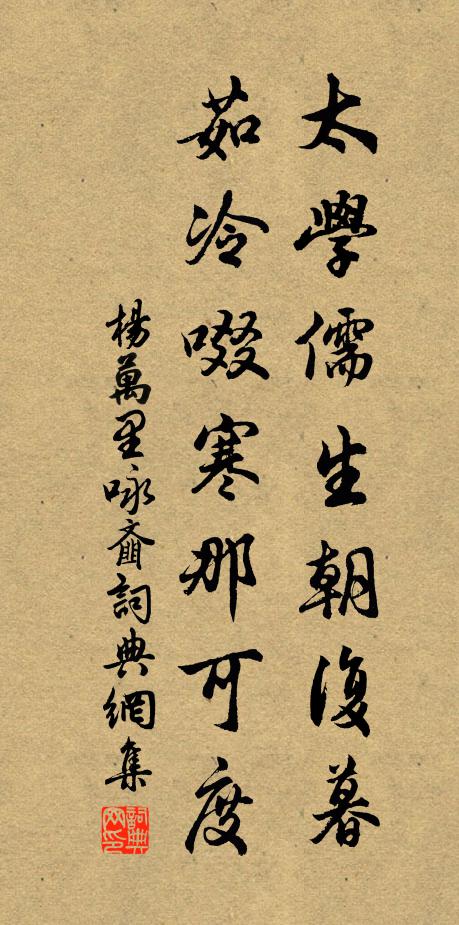 太學儒生朝復暮
茹冷啜寒那可度
楊萬里咏齑詞典網集
詞典
网印